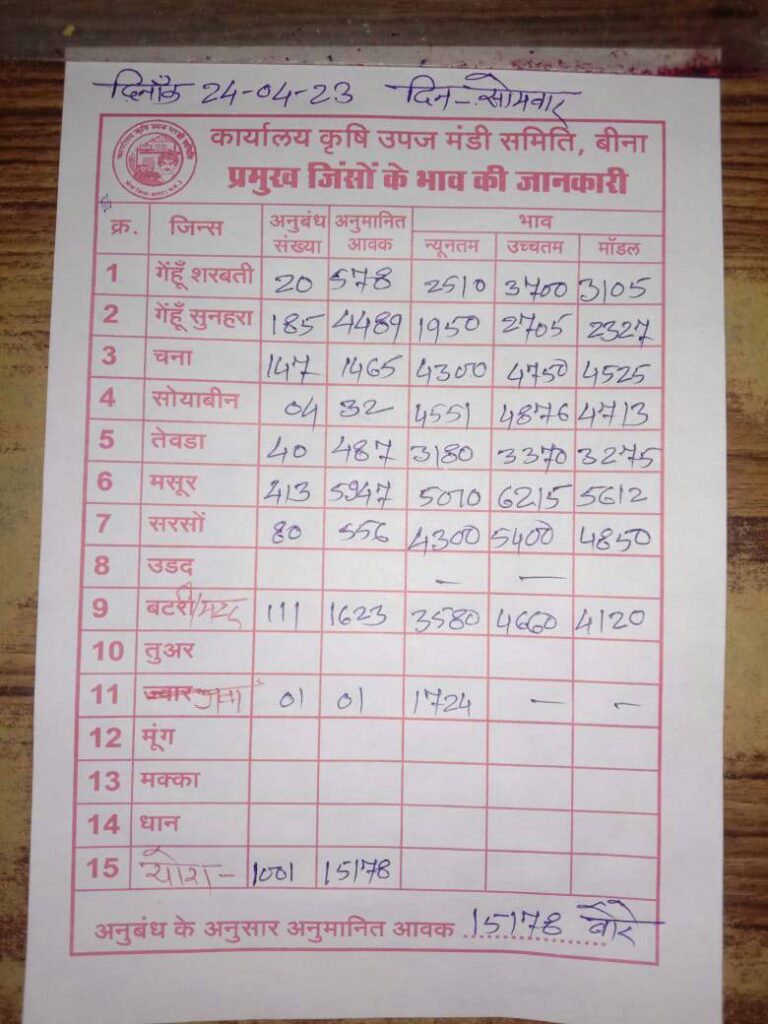 दिनाँक 24-04-23 दिन-सोमवार
कार्यालय कृषि उपज मंडी समिति, बीना
प्रमुख जिंसों के भाव की जानकारी
क्र. जिन्स अनुबंध संख्या अनुमानित आवक भाव
न्यूनतम उच्चतम मॉडल
1 गेंहूँ शरबती 20 578 2510 3700 3105
2 गेंहूँ सुनहरा 185 4489 1950 2705 2327
3 चना 147 1465 4300 4750 4525
4 सोयाबीन 04 32 4551 4876 4713
5 तेवडा 40 487 3180 3370 3275
6 मसूर 413 5947 5070 6215 5612
7 सरसों 80 556 4300 5400 4850
8 उडद - -
9 बटरी/मटर 111 1623 3580 4660 4120
10 तुअर
11 ज्वार 01 01 1724 - -
12 मूंग
13 मक्का
14 धान
15 योग- 1001 15178
अनुबंध के अनुसार अनुमानित आवक 15178 बोरे